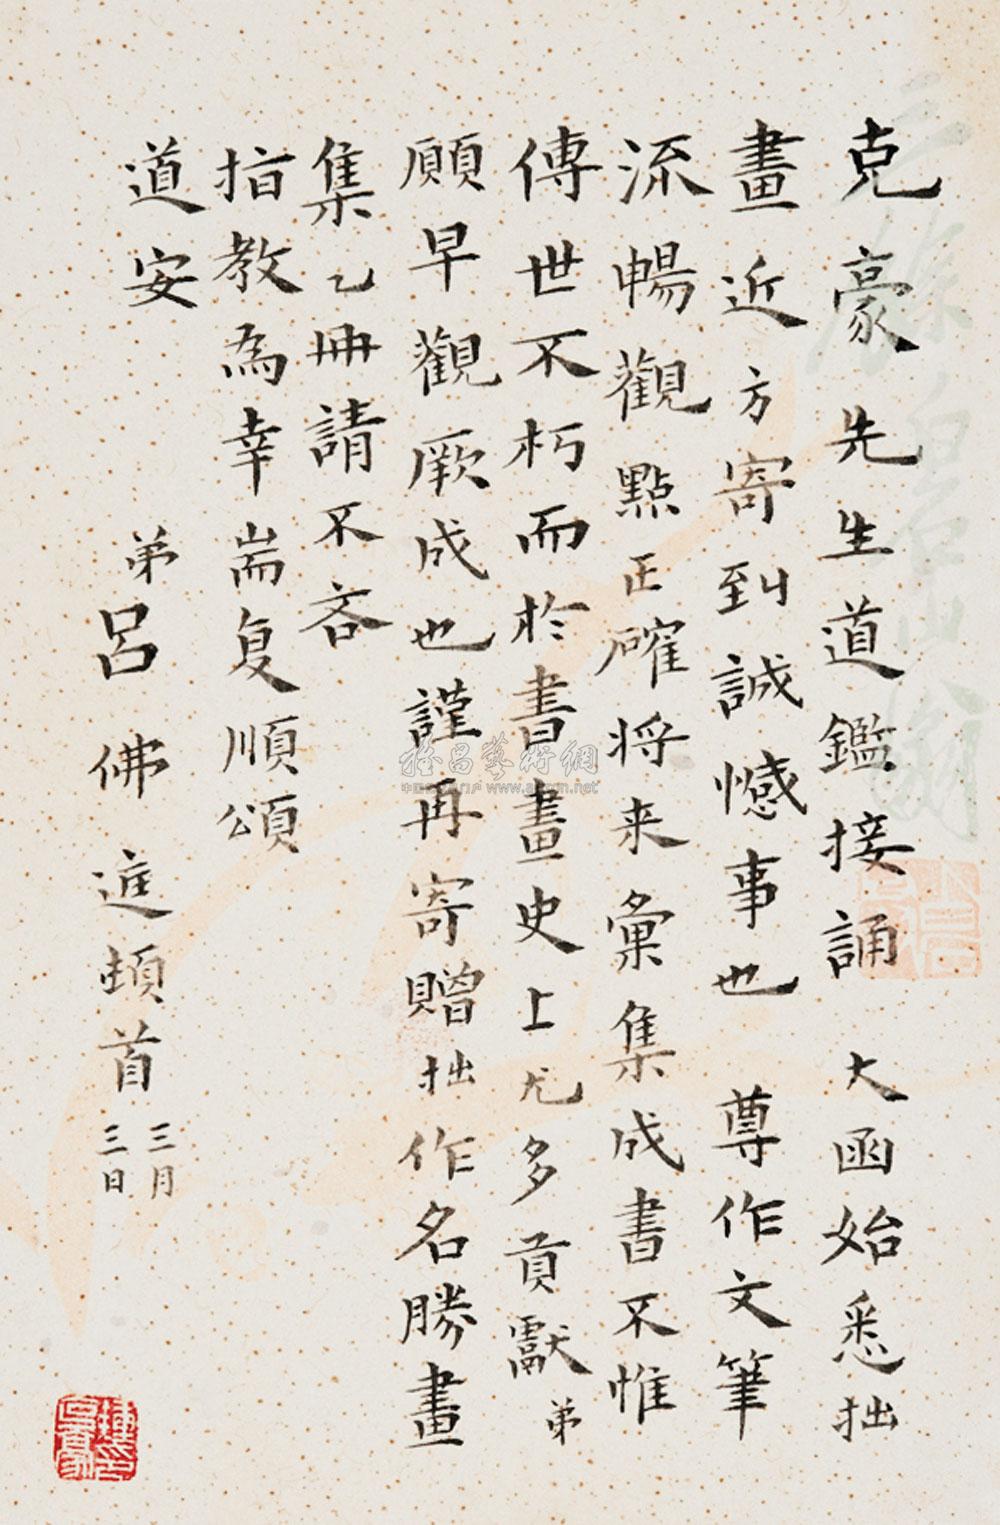 克豪先生道鑑接誦 大函始悉拙
畫近方寄到誠憾事也 尊作文筆
流暢觀點正確将来彙集成書不惟
傳世不朽而於書畫史上尤多貢獻弟
願早觀厥成也謹再寄贈拙作名勝畫
集乙冊請不吝
指教為幸耑复順頌
道安
弟呂佛庭頓首
三月
三日